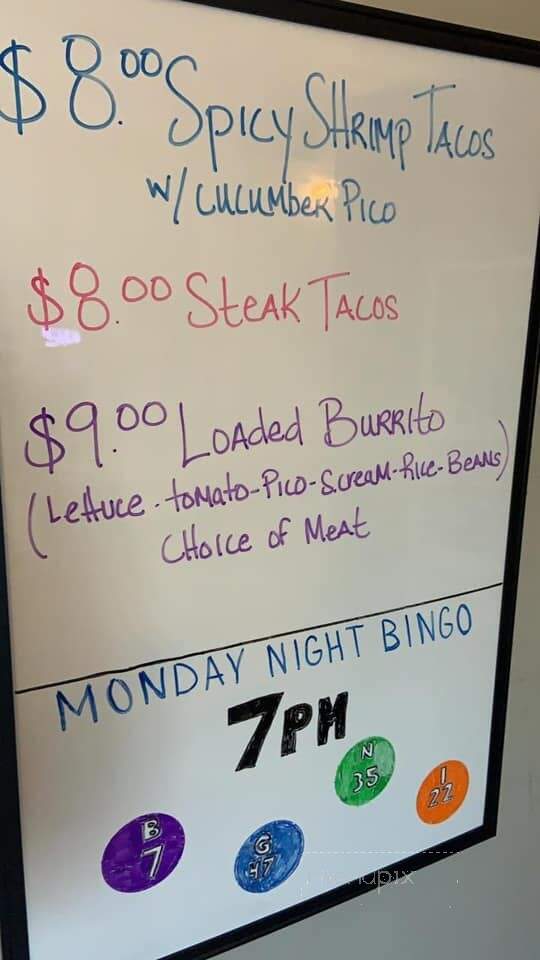 $8.00 Spicy Shrimp Tacos
w/ Cucumber Pico
$8.00 Steak Tacos
$9.00 Loaded Burrito
(Lettuce - tomato - Pico - S.cream - Rice - Beans)
Choice of Meat
MONDAY NIGHT BINGO
7PM
N
35
I
22
B
7
G
47